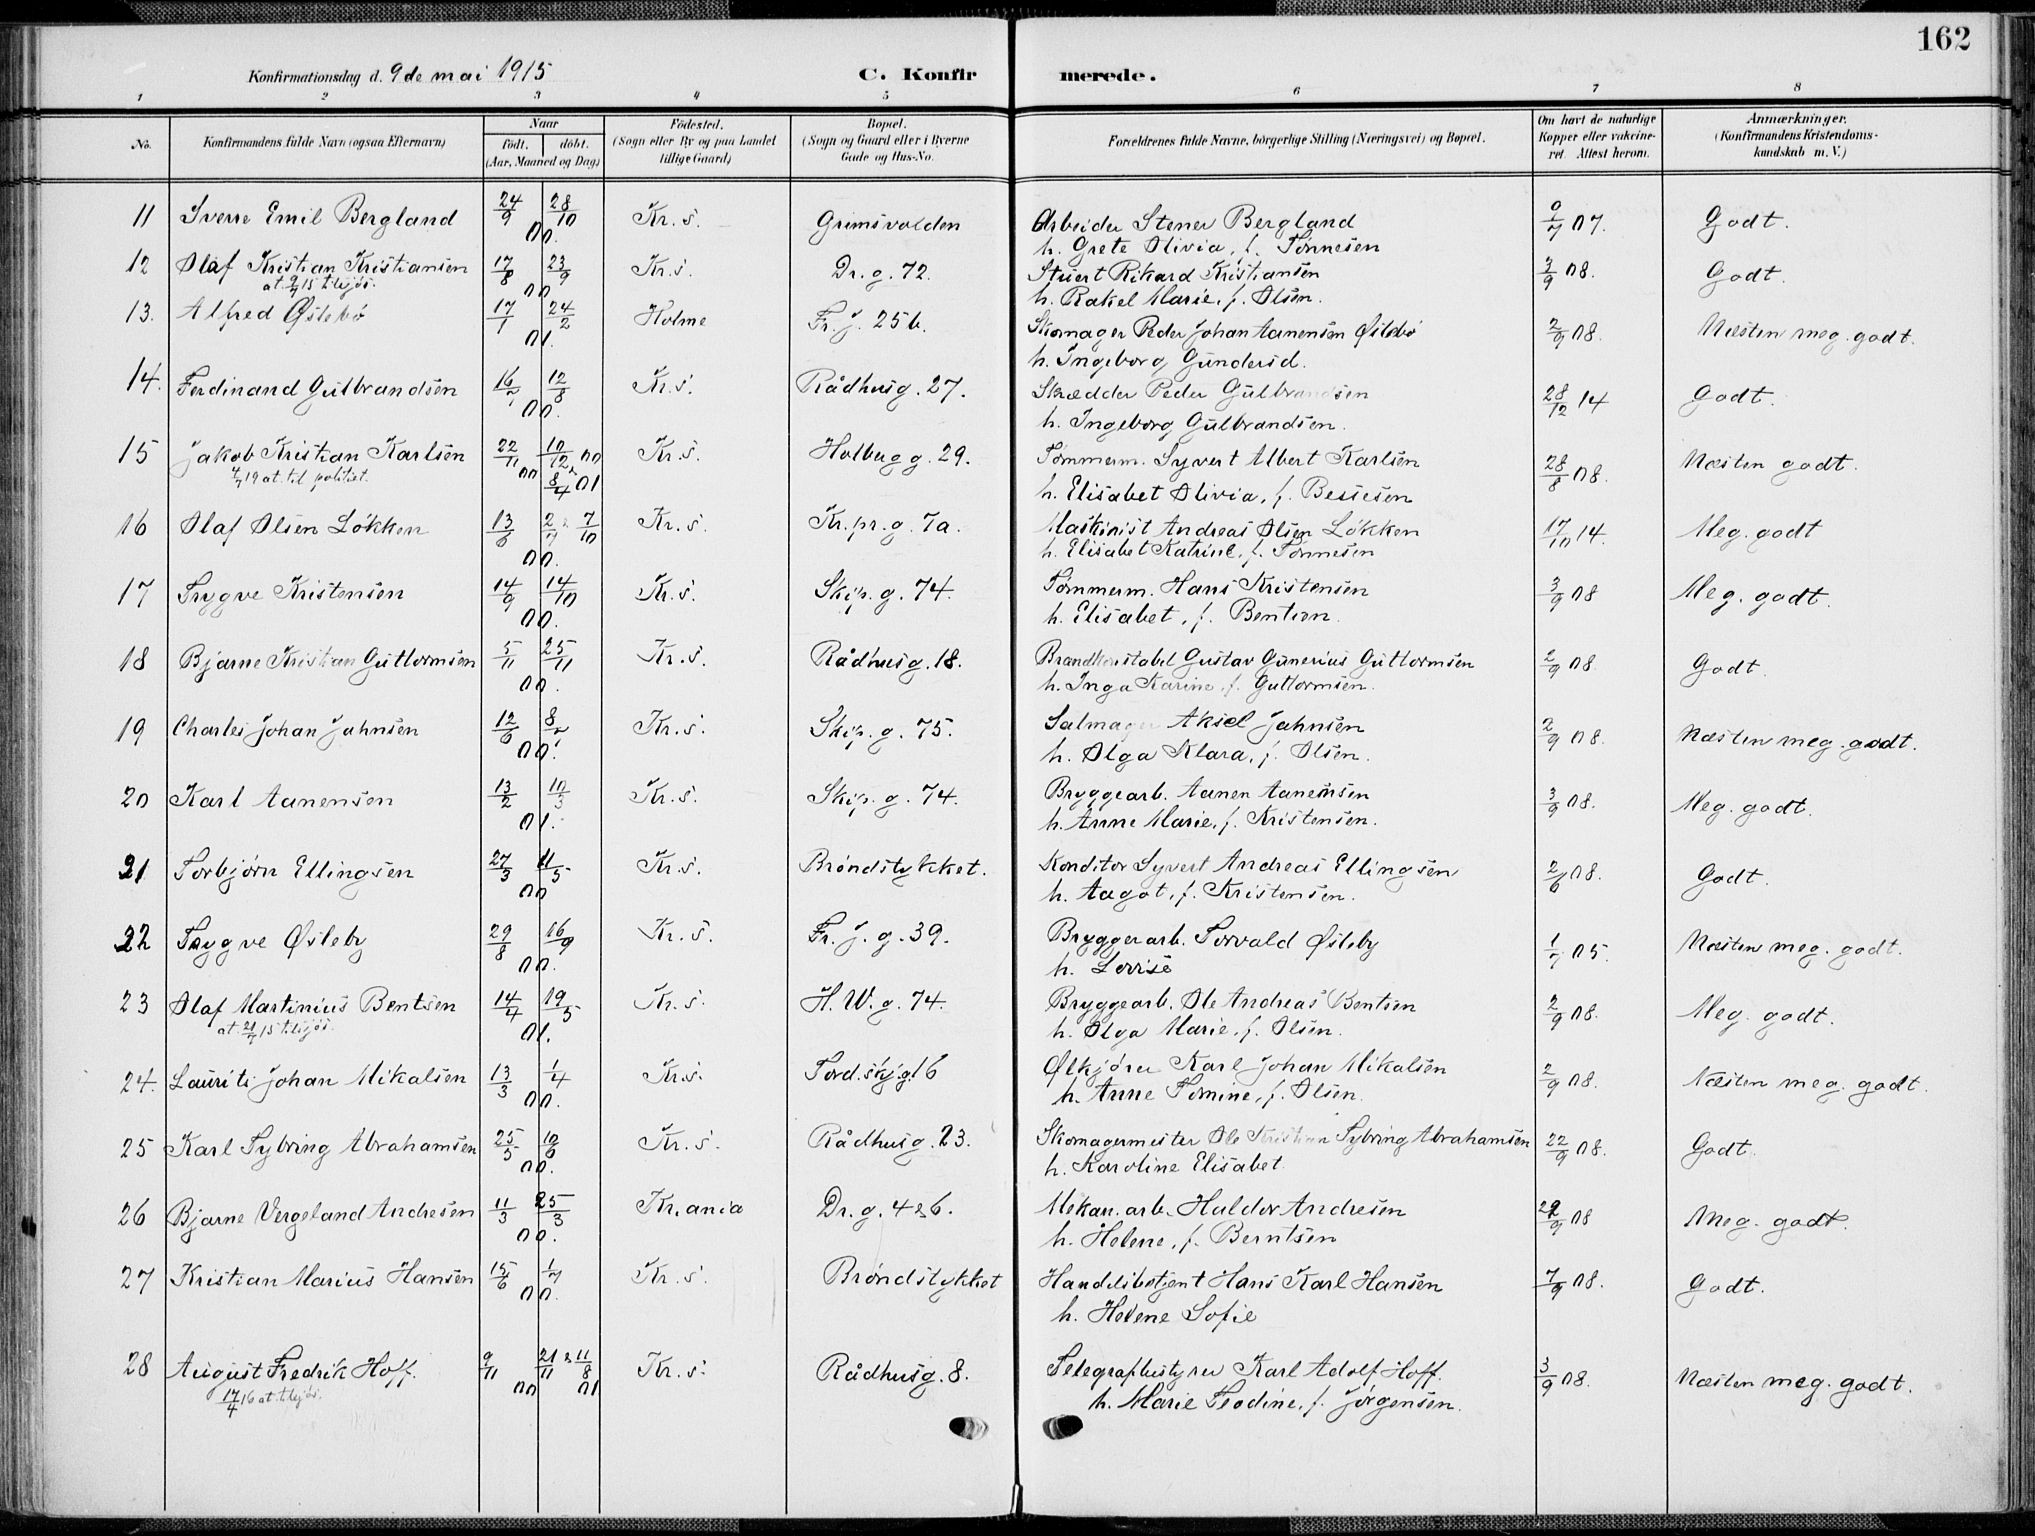 162
Konfirmationsdag d. 9de mai 1915 C. Konfirmerede.
1 2 3 4 5 6 7 8
No. Konfirmandens fulde Navn (ogsaa Efternavn) Naar födt. döbt. (Aar, Maaned og Dag) Födested. (Sogn eller By og paa Landet tillige Gaard) Bopæl. (Sogn og Gaard eller i Byerne Gade og Hus-No. Forældrenes fulde Navne, börgerlige Stilling (Næringsvei) og Bopæl. Om havt de naturlige Kopper eller vakcineret. Attest herom. Anmærkninger. (Konfirmandens Kristendomskundskab m. V.)
11 Sverre Emil Bergland 24/9 28/10 00. Kr. s. Grimsvolden Arbeider Stener Bergland 0/7 07. Godt.
h. Grete Olivia, f. Tønnesen
12 Olaf Kristian Kristiansen 17/8 23/9 00 Kr. s. Dr. g. 72. Stuert Rikard Kristiansen 3/9 08. Godt.
at. 9/7 15 til sjøs. h. Rakel Marie, f. Olsen.
13. Alfred Øslebø 17/1 24/2 01. Holme Fr. J. 25 b. Skomager Peder Johan Aanensen Øslebø 2/9 08. Næsten meg. godt.
h. Ingeborg Gundersd.
14. Ferdinand Gulbrandsen 16/7 12/8 00. Kr. s. Rådhusg. 27. Skrædder Peder Gulbrandsen 28/12 14 Godt.
h. Ingeborg Gulbrandsen.
15 Jakob Kristian Karlsen 22/11 00 10/12 00 8/4 01 Kr. s. Holbergg. 29. Tømmerm. Syvert Albert Karlsen 28/8 08. Næsten godt.
4/7 19 at. til politiet. h. Elisabet Olivia, f. Bessesen
16 Olaf Olsen Løkken 13/6 2/7 & 7/10 00. Kr. s. Kr. pr. g. 7a. Maskinist Andreas Olsen Løkken 17/10 14. Meg. godt
h. Elisabet Katrine, f. Tønnesen
17 Trygve Kristensen 14/9 14/10 00. Kr. s. Skip. g. 74. Tømmerm. Hans Kristensen 3/9 08 Meg. godt.
h. Elisabet, f. Bentsen.
18 Bjarne Kristian Guttormsen 5/11 25/11 00. Kr. s. Rådhusg. 18. Brandkonstabel Gustav Gunerius Guttormsen 2/9 08. Godt.
h. Inga Karine, f. Guttormsen.
19 Charles Johan Jahnsen 12/6 8/7 00. Kr. s. Skip. g. 75. Salmager Aksel Jahnsen 2/9 08. Næsten meg. godt.
h. Olga Klara, f. Olsen.
20 Karl Aanensen 13/2 10/3 01. Kr. s. Skip. g. 74. Bryggearb. Aanen Aanensen 3/9 08. Meg. godt.
h. Anne Marie, f. Kristensen.
21 Torbjørn Ellingsen 27/3 11/5 00 Kr. s. Brøndstykket. Konditor Syvert Andreas Ellingsen 2/6 08. Godt.
h. Aagot, f. Kristensen.
22 Trygve Øsleby 29/8 16/9 00. Kr. s. Fr. J. g. 39. Bryggerarb. Torvald Øsleby 1/7 05. Næsten meg. godt.
h. Lovise
23 Olaf Martinius Bentsen 14/4 19/5 01. Kr. s. H. W. g. 74. Bryggearb. Ole Andreas Bentsen 2/9 08. Meg. godt.
at. 21/7 15 til sjøs. h. Olga Marie, f. Olsen.
24. Laurits Johan Mikalsen 13/3 1/4 00. Kr. s. Tord. skj. g. 16 Ølkjører Karl Johan Mikalsen 2/9 08. Næsten meg. godt.
h. Anne Tomine, f. Olsen.
25 Karl Sybring Abrahamsen 25/5 10/6 00. Kr. s. Rådhusg. 23. Skomagermester Ole Kristian Sybring Abrahamsen 22/9 08. Godt.
h. Karoline Elisabet
26 Bjarne Vergeland Andresen 11/3 25/3 00. Kr.ania Dr. g. 4 & 6. Mekan. arb. Haldor Andresen 22/9 08 Meg. godt.
h. Helene, f. Berntsen
27 Kristian Marius Hansen 15/6 1/7 00. Kr. s. Brøndstykket Handelsbetjent Hans Karl Hansen 7/9 08. Godt.
h. Helene Sofie
28 August Fredrik Hoff. 9/11 00 21/11 & 11/8 01 Kr. s. Rådhusg. 8. Telegrafbestyrer Karl Adolf Hoff. 3/9 08. Næsten meg. godt.
17/4 16 at. til sjøs. h. Marie Teodine, f. Jørgensen.